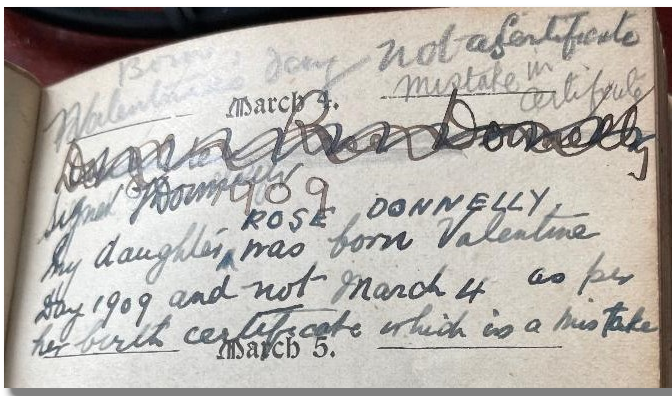 Born
Valentines day not as Certificate
mistake in
certificate
March 4.
Donnelly
signed Donnelly
1909
ROSE DONNELLY.
My daughter, was born Valentine
Day 1909 and not March 4 as per
her birth certificate which is a mistake
March 5.